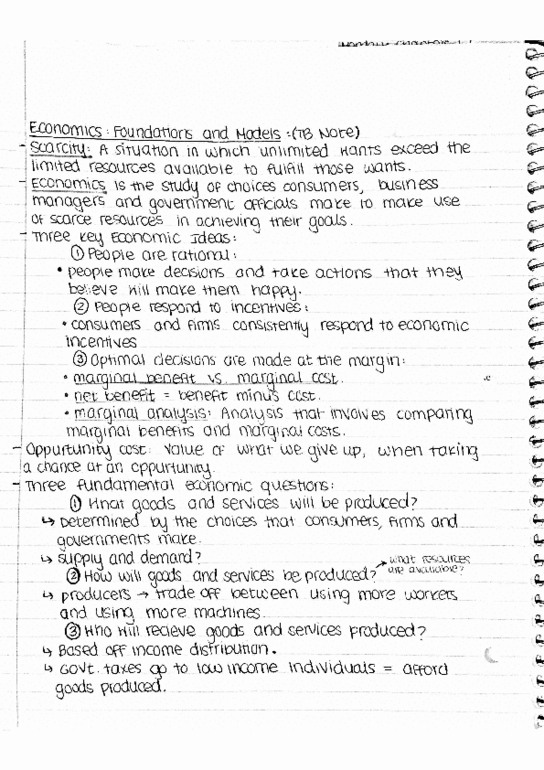 Economics: Foundations and Models :(TB Note)
- Scarcity: A situation in which unlimited wants exceed the
limited resources available to fulfill those wants.
- Economics is the study of choices consumers, business
managers and government officials make to make use
of scarce resources in achieving their goals.
- Three Key Economic Ideas:
① People are rational:
• people make decisions and take actions that they
believe will make them happy.
② People respond to incentives:
• consumers and firms consistently respond to economic
incentives
③ Optimal decisions are made at the margin:
• marginal benefit vs. marginal cost.
• net benefit = benefit minus cost.
• marginal analysis: Analysis that involves comparing
marginal benefits and marginal costs.
- Oppurtunity cost: value of what we give up, when taking
a chance at an oppurtunity.
- Three fundamental economic questions:
① What goods and services will be produced?
↳ Determined by the choices that consumers, firms and
governments make.
↳ supply and demand?
② How will goods and services be produced? → what resources
are available?
↳ producers → trade off between using more workers
and using more machines.
③ Who will recieve goods and services produced?
↳ Based off income distribution.
↳ Govt. taxes go to low income individuals = afford
goods produced.